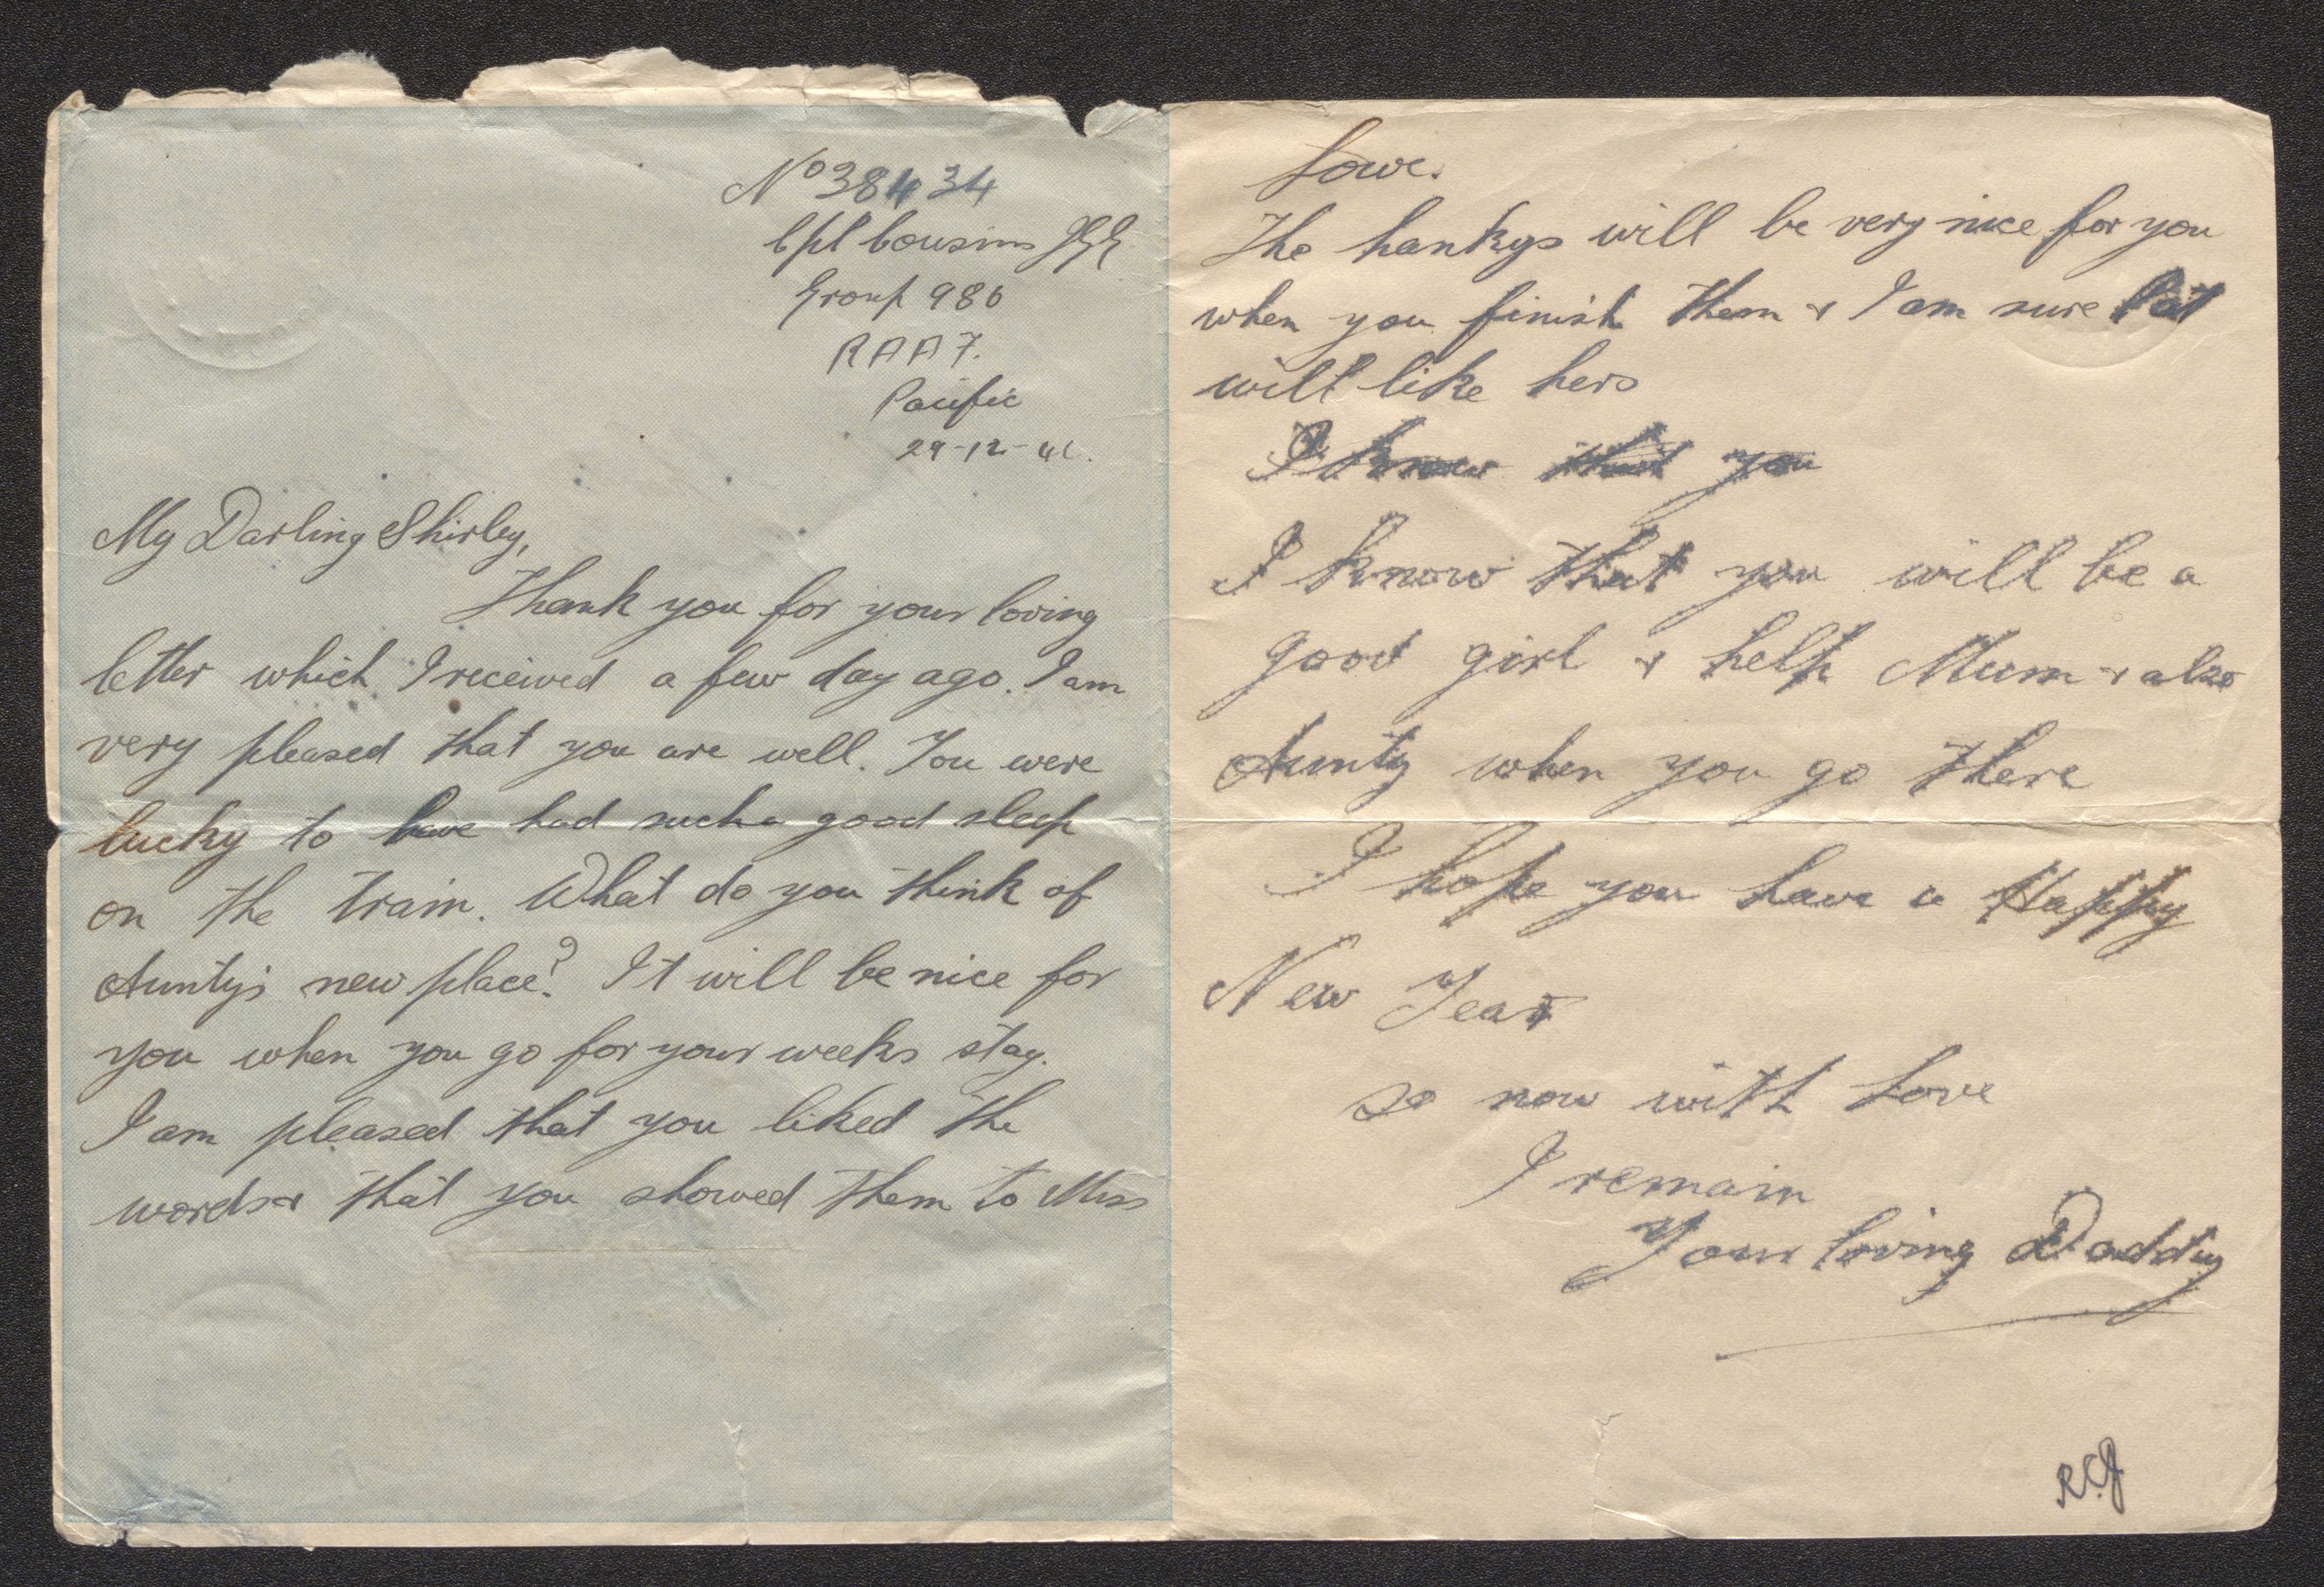 No 38434
Cpl Cousins JGG
Group 980
RAAF.
Pacific
29-12-41.
My Darling Shirley,
Thank you for your loving
letter which I received a few day ago. I am
very pleased that you are well. You were
lucky to have had such a good sleep
on the train. What do you think of
Aunty's new place? It will be nice for
you when you go for your weeks stay.
I am pleased that you liked the
words & that you showed them to Miss
Lowe.
The hankys will be very nice for you
when you finish them & I am sure Pat
will like hers
I know that you
I know that you will be a
good girl & help Mum & also
Aunty when you go there
I hope you have a Happy
New Year
so now with Love
I remain
Your loving Daddy
RCJ